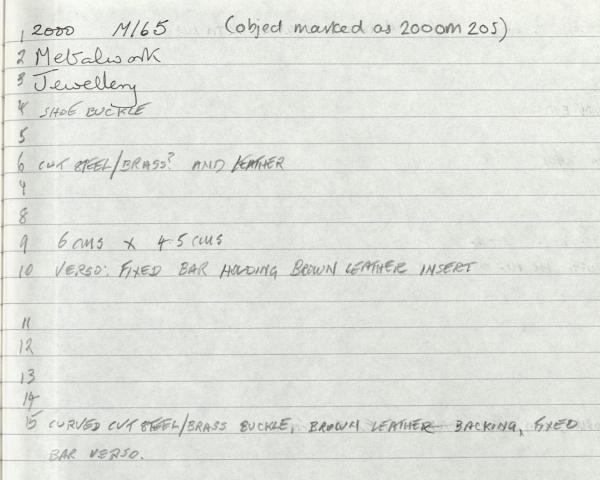 1 2000 M165 (object marked as 2000m 205)
2 Metalwork
3 Jewellery
4 SHOE BUCKLE
5
6 CUT STEEL/BRASS? AND LEATHER
7
8
9 6 CMS X 4.5 CMS
10 VERSO: FIXED BAR HOLDING BROWN LEATHER INSERT
11
12
13
14
15 CURVED CUT STEEL/BRASS BUCKLE, BROWN LEATHER BACKING, FIXED
BAR VERSO.